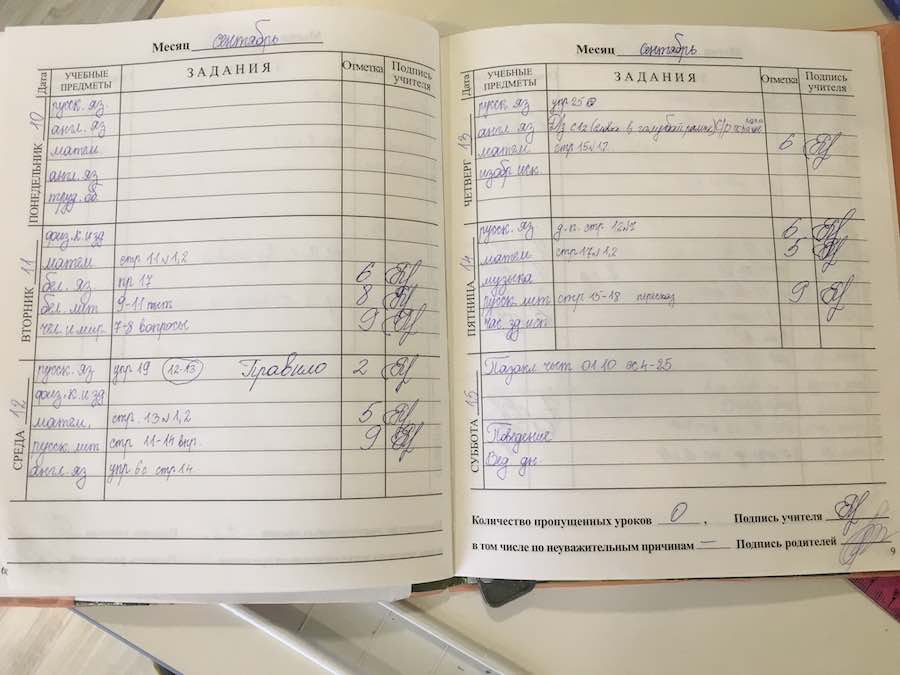 Месяц сентябрь
Дата УЧЕБНЫЕ ПРЕДМЕТЫ ЗАДАНИЯ Отметка Подпись учителя
ПОНЕДЕЛЬНИК 10
русск. яз
англ. яз
матем
англ. яз
труд. об
ВТОРНИК 11
физ. к. и зд
матем стр 11 № 1,2
бел. яз пр 17 6
бел. лит 9-11 чит 8
чел. и мир. 7-8 вопросы 9
СРЕДА 12
русск. яз упр 19 12-13 Правило 2
физ. к. и зд
матем. стр. 13 № 1,2 5
русск. лит стр 11-14 9
англ. яз упр 6с стр 14
Месяц сентябрь
Дата УЧЕБНЫЕ ПРЕДМЕТЫ ЗАДАНИЯ Отметка Подпись учителя
ЧЕТВЕРГ 13
русск. яз упр 25
англ. яз Р/з с 12 (слова в голубой рамке)
матем стр 15 № 12 6
изобр иск.
ПЯТНИЦА 14
русск. яз д. к. стр 12 № 7 6
матем стр 17 № 1,2 5
музыка
русск. лит стр 15-18 пересказ 9
час. зд.
СУББОТА 15
чит 01.10 4-25
Поведение
Вед дн
Количество пропущенных уроков 0 , Подпись учителя
в том числе по неуважительным причинам — Подпись родителей
9